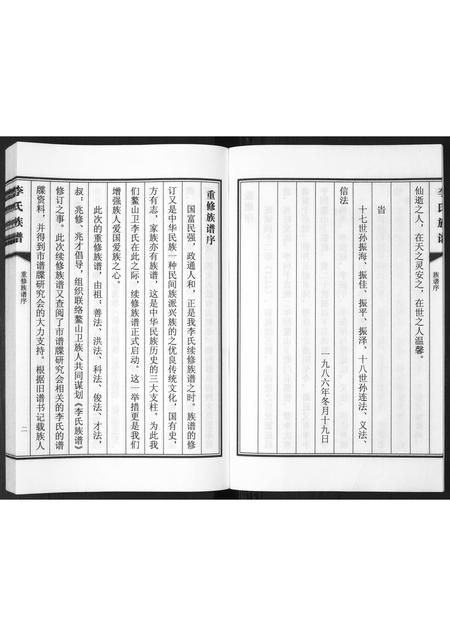 李氏族谱
族谱序
仙逝之人，在天之灵安之，在世之人温馨。
旹
十七世孙振海、振佳、振平、振泽、十八世孙连法、义法、
信法
一九八六年冬月十九日
重修族谱序
国富民强，政通人和，正是我李氏续修族谱之时。族谱的修
订又是中华民族一种民间族派兴族的之优良传统文化，国有史，
方有志，家族亦有族谱，这是中华民族历史的三大支柱。为此我
们鳌山卫李氏在此之际，续修族谱正式启动。这一举措更是我们
增强族人爱国爱族之心。
此次的重修族谱，由祖：善法、洪法、科法、俊法、才法，
叔：兆修、兆才倡导，组织联络鳌山卫族人共同谋划《李氏族谱》
修订之事。此次续修族谱又查阅了市谱牒研究会相关的李氏的谱
牒资料，并得到市谱牒研究会的大力支持。根据旧谱书记载族人
李氏族谱
重修族谱序
二